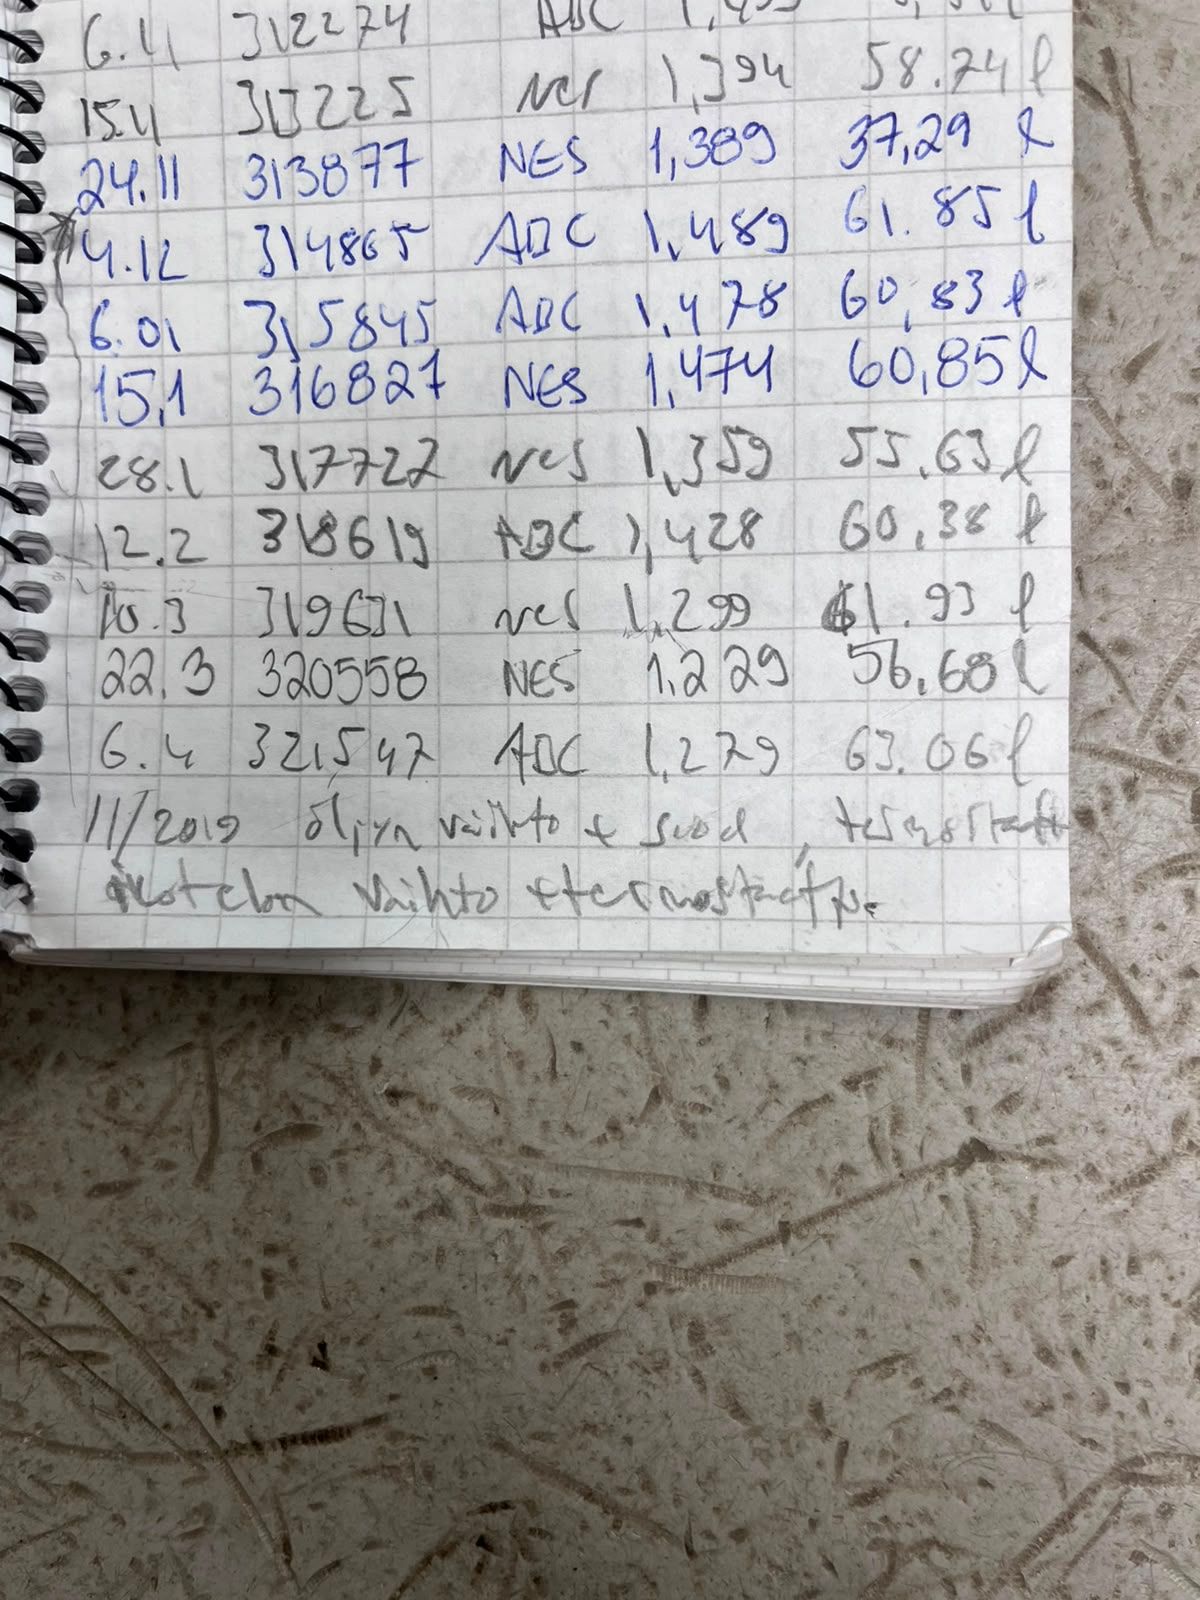 6.11 312274 ABC
15.11 313225 NES 1,394 58.74 l
24.11 313877 NES 1,389 37,29 l
4.12 314865 ABC 1,489 61.85 l
6.01 315845 ABC 1,478 60,83 l
15,1 316827 NES 1,474 60,85 l
28.1 317722 NES 1,359 55.63 l
12.2 318619 ABC 1,428 60.38 l
10.3 319631 NES 1.299 61.93 l
22.3 320558 NES 1.229 56.68 l
6.4 321547 ABC 1,279 63.06 l
11/2019 öljyn vaihto + suod, termostaatti
kotelon vaihto + termostaatti.